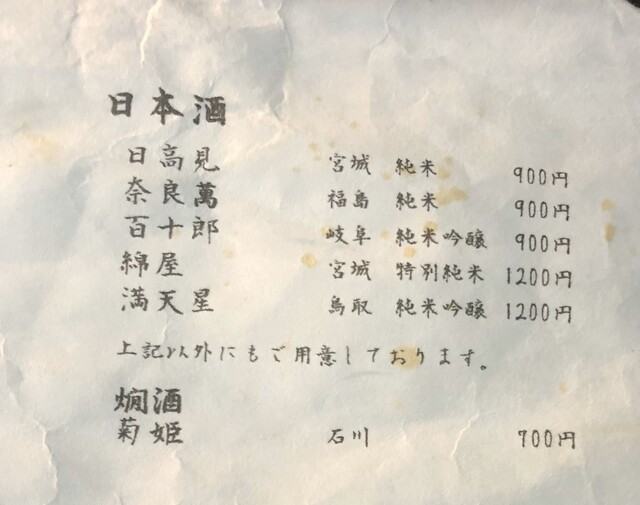 日本酒
日高見 宮城 純米 900円
奈良萬 福島 純米 900円
百十郎 岐阜 純米吟醸 900円
綿屋 宮城 特別純米 1200円
満天星 鳥取 純米吟醸 1200円
上記以外にもご用意しております。
燗酒
菊姫 石川 700円